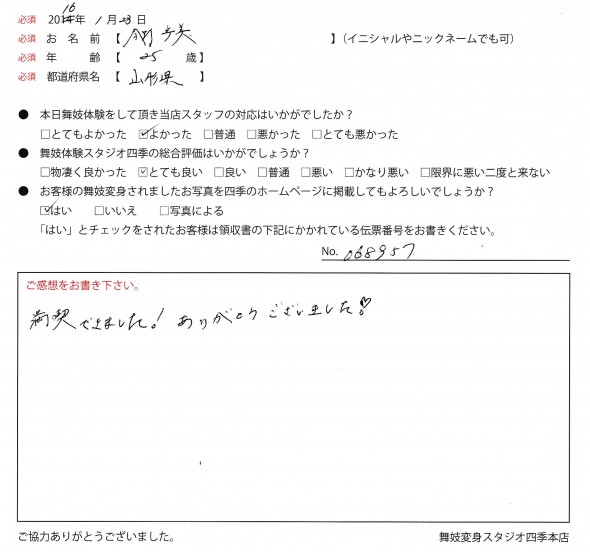 16
必須 2014年 1月23日
必須 お 名 前 【 】(イニシャルやニックネームでも可)
必須 年 齢 【 25 歳】
必須 都道府県名 【 山形県 】
● 本日舞妓体験をして頂き当店スタッフの対応はいかがでしたか?
□とてもよかった ☑よかった □普通 □悪かった □とても悪かった
● 舞妓体験スタジオ四季の総合評価はいかがでしょうか?
□物凄く良かった ☑とても良い □良い □普通 □悪い □かなり悪い □限界に悪い二度と来ない
● お客様の舞妓変身されましたお写真を四季のホームページに掲載してもよろしいでしょうか?
☑はい □いいえ □写真による
「はい」とチェックをされたお客様は領収書の下記にかかれている伝票番号をお書きください。
No. 068957
ご感想をお書き下さい。
満喫できました! ありがとうございました♡
ご協力ありがとうございました。 舞妓変身スタジオ四季本店